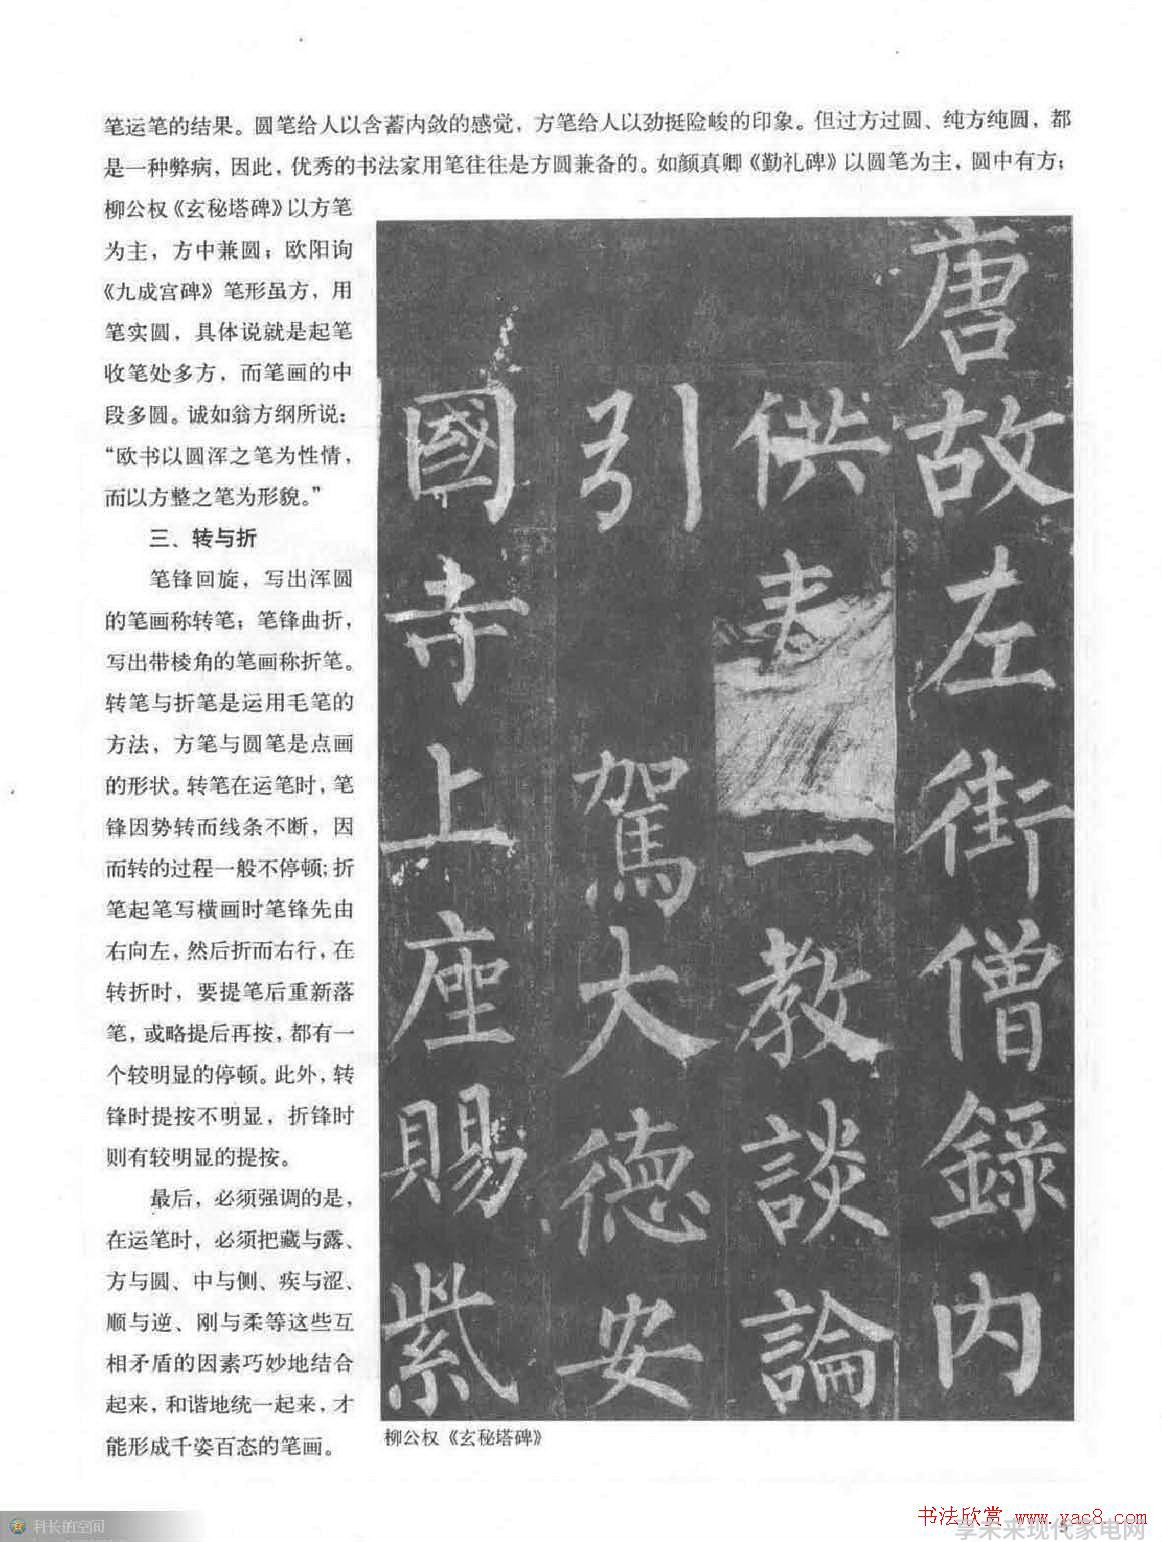 笔运笔的结果。圆笔给人以含蓄内敛的感觉，方笔给人以劲挺险峻的印象。但过方过圆、纯方纯圆，都
是一种弊病，因此，优秀的书法家用笔往往是方圆兼备的。如颜真卿《勤礼碑》以圆笔为主，圆中有方；
柳公权《玄秘塔碑》以方笔
为主，方中兼圆；欧阳询
《九成宫碑》笔形虽方，用
笔实圆，具体说就是起笔
收笔处多方，而笔画的中
段多圆。诚如翁方纲所说：
“欧书以圆浑之笔为性情，
而以方整之笔为形貌。”
三、转与折
笔锋回旋，写出浑圆
的笔画称转笔；笔锋曲折，
写出带棱角的笔画称折笔。
转笔与折笔是运用毛笔的
方法，方笔与圆笔是点画
的形状。转笔在运笔时，笔
锋因势转而线条不断，因
而转的过程一般不停顿；折
笔起笔写横画时笔锋先由
右向左，然后折而右行，在
转折时，要提笔后重新落
笔，或略提后再按，都有一
个较明显的停顿。此外，转
锋时提按不明显，折锋时
则有较明显的提按。
最后，必须强调的是，
在运笔时，必须把藏与露、
方与圆、中与侧、疾与涩、
顺与逆、刚与柔等这些互
相矛盾的因素巧妙地结合
起来，和谐地统一起来，才
能形成千姿百态的笔画。
唐故左街僧錄內
供奉三教談論
引駕大德安
國寺上座賜紫
柳公权《玄秘塔碑》
科长的空间
书法欣赏 www.yac8.com
享未来现代家电网